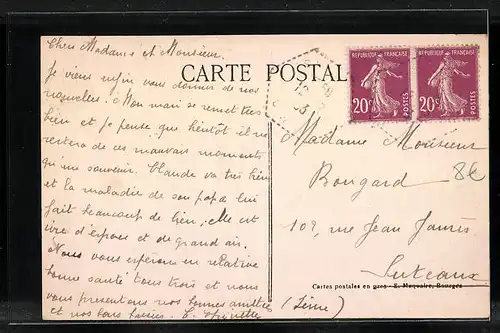 Chers Madame et Monsieur.
Je viens enfin vous donner de nos
nouvelles. Mon mari se remet très
bien et je pense que bientôt il ne
restera de ces mauvais moments
qu'un souvenir. Claude va très bien
et la maladie de son papa lui
fait beaucoup de bien, elle est
ivre d'espace et de grand air.
Nous vous espérons en relative
bonne santé tous trois et nous
vous présentons nos bonnes amitiés
et nos bons baisers.
CARTE POSTALE
REPUBLIQUE FRANÇAISE
20c POSTES
REPUBLIQUE FRANÇAISE
20c POSTES
Madame Monsieur
Bougard
8€
102, rue Jean Jaurès
Puteaux
Cartes postales en gros - E. Marquaire, Bourges
(Seine)